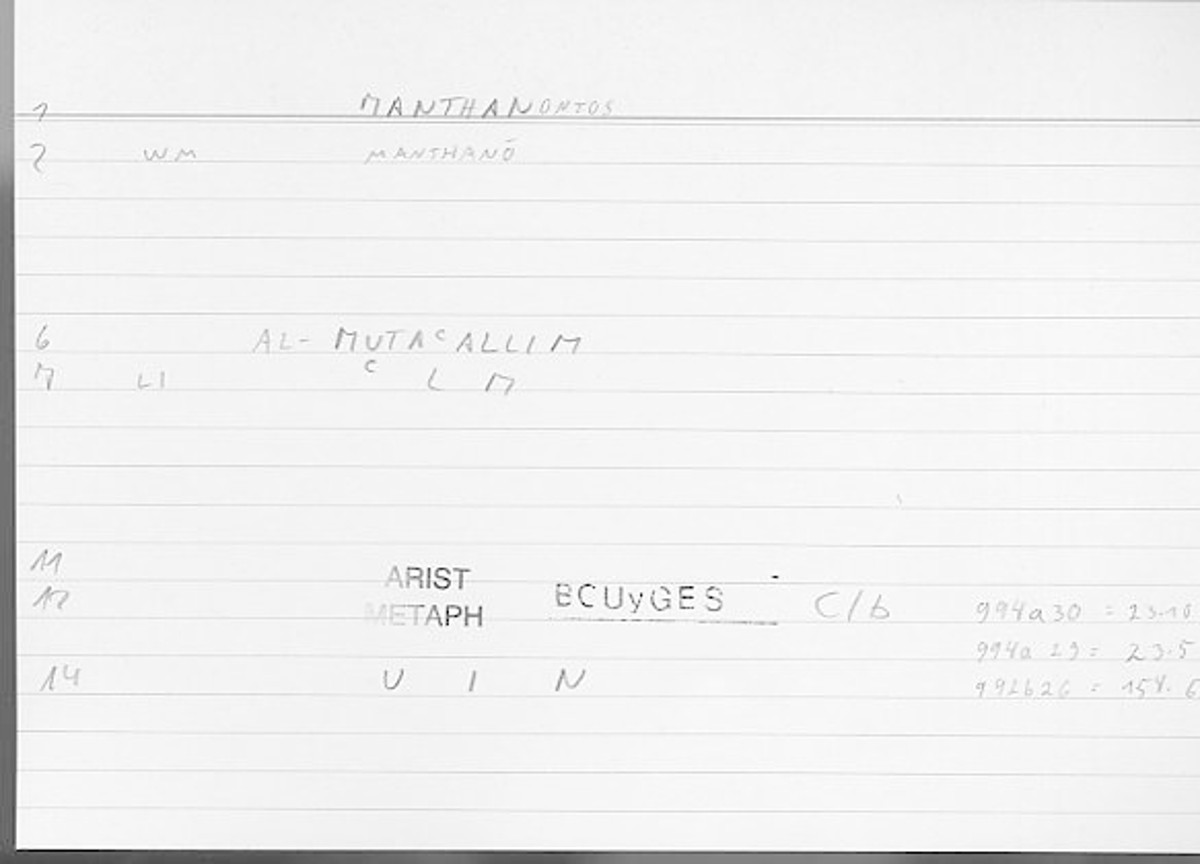 1 MANTHANONTOS
2 WM MANTHANŌ
6 AL- MUTAᶜALLIM
7 LI ᶜ L M
11 ARIST
12 METAPH BOUyGES C/b 994a30 = 23.10
994a 29 = 23.5
14 U I N 992b26 = 154.6